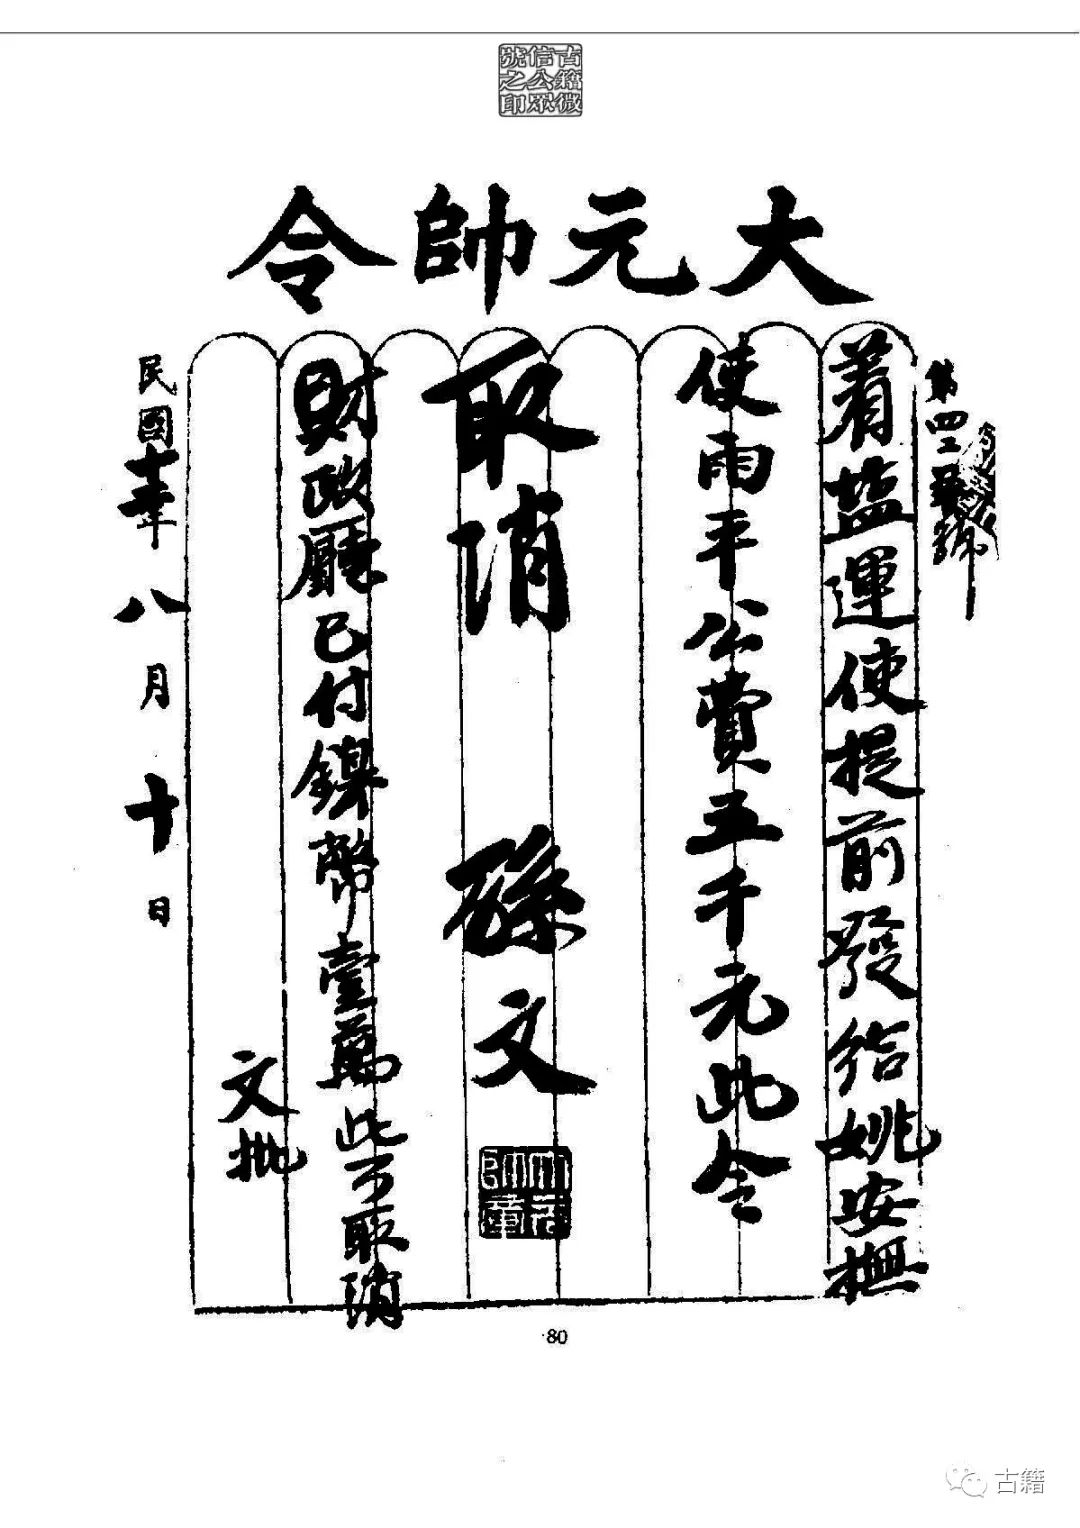 古籍微
信公眾
號之印
大元帥令
第四二號
着塩運使提前發給姚安撫
使雨平公費五千元此令
取消
孫文
財政廳已付鎳幣壹萬此可取消
文批
民國十二年八月十日
80
古籍